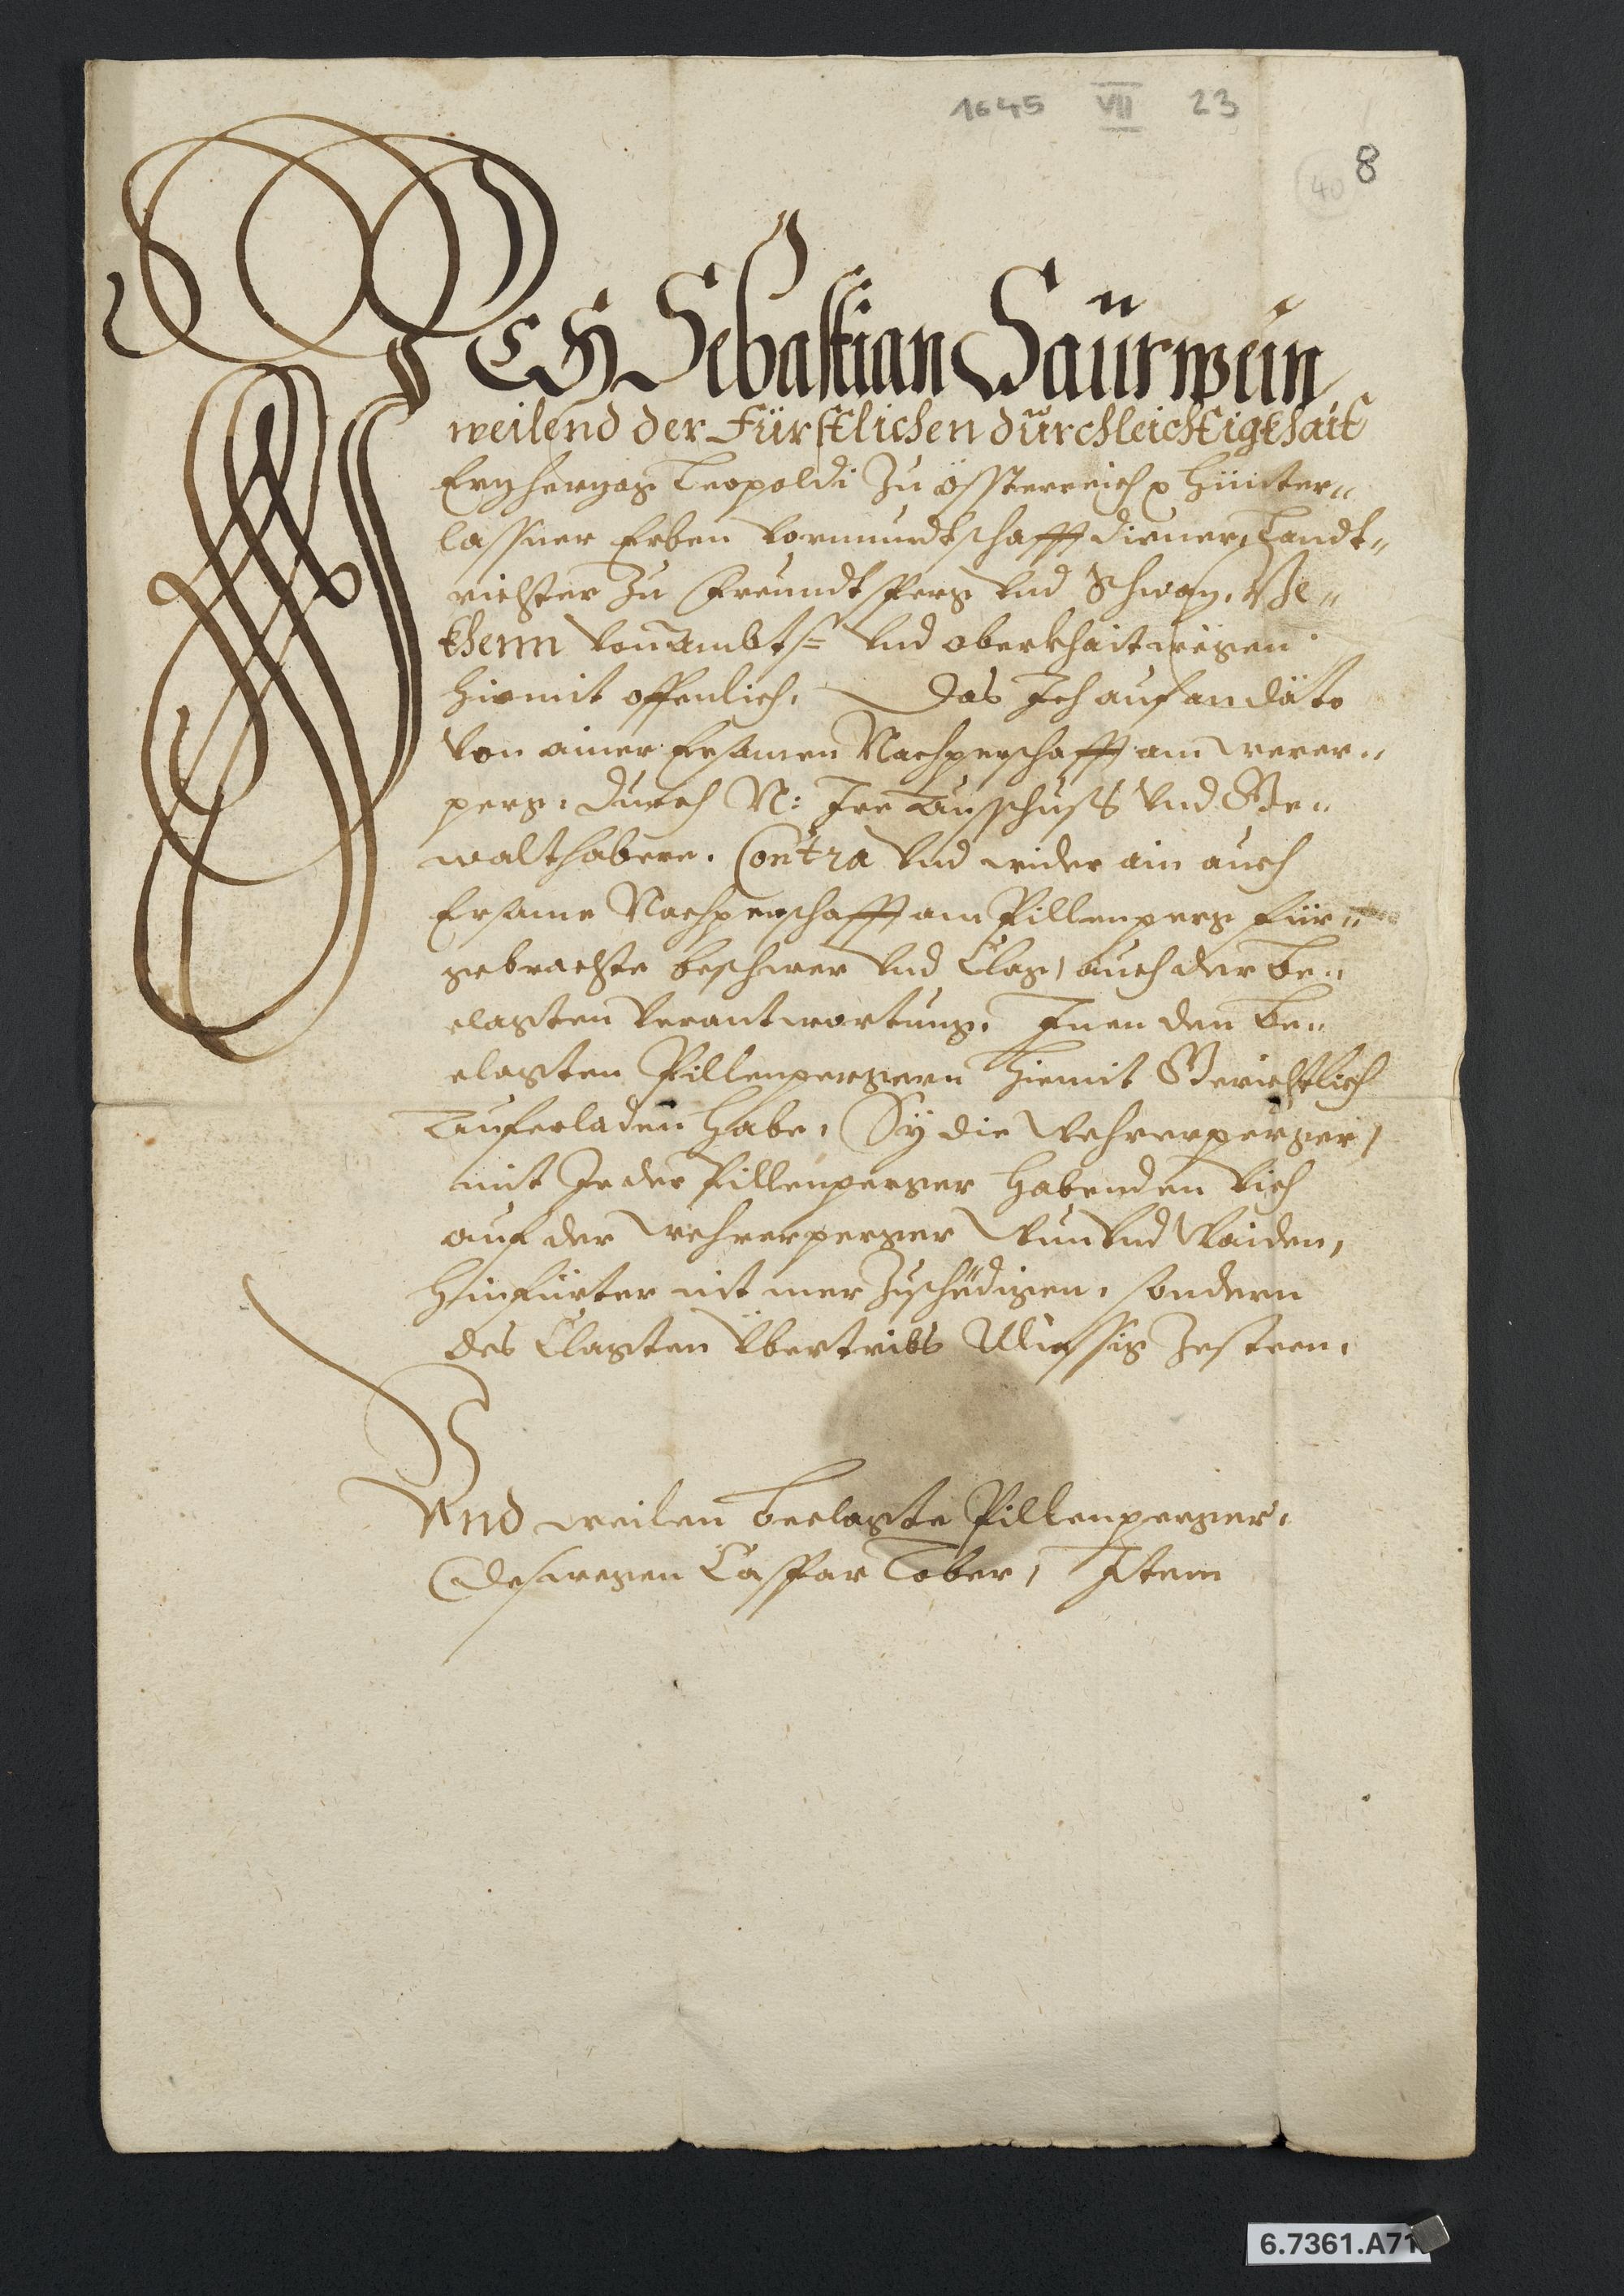 1645 VII 23
40 8
ICH Sebastian Saürwein
weilend der Fürstlichen dürchleichtigkhait
Erzherzog Leopoldi Zu össterreich hünter„
lassner Erben Vormundtschafft diener, Landt„
richter Zu Freundtsperg und Schwaz, Be„
khenn von ambts= und oberkhait wegen
hiemit offenlich, Das Ich auf an dato
von ainer Ersamen Nachperschafft am werer„
perg, durch N: Ire Ausschuss und Ge„
walthabere. Contra und wider ain auch
Ersame Nachperschafft am Pillenperg für„
gebrachte beschwer und Clag, auch der be„
clagten verantwortung. Inen den be„
clagten Pillenpergern hiemit Gerichtlich
Auferladen habe, Sÿ die Wehrerperger,
mit Ir der Pillenperger habenden vich
auf der wehrerperger Wun und Waiden,
hinfürter nit mer Zuschëdigen, sondern
des Clagten Übertribs Miessig Zesteen.
Und weilen beclagte Pillenperger,
Deswegen Casspar Tober, Item
6.7361.A71